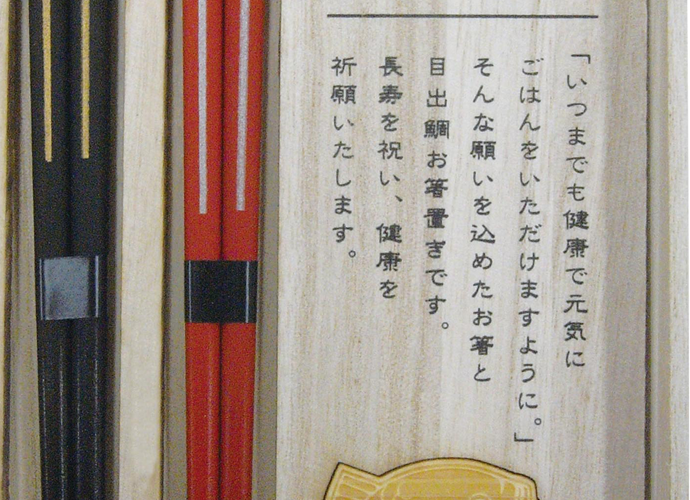 「いつまでも健康で元気に
ごはんをいただけますように。」
そんな願いを込めたお箸と
目出鯛お箸置きです。
長寿を祝い、健康を
祈願いたします。